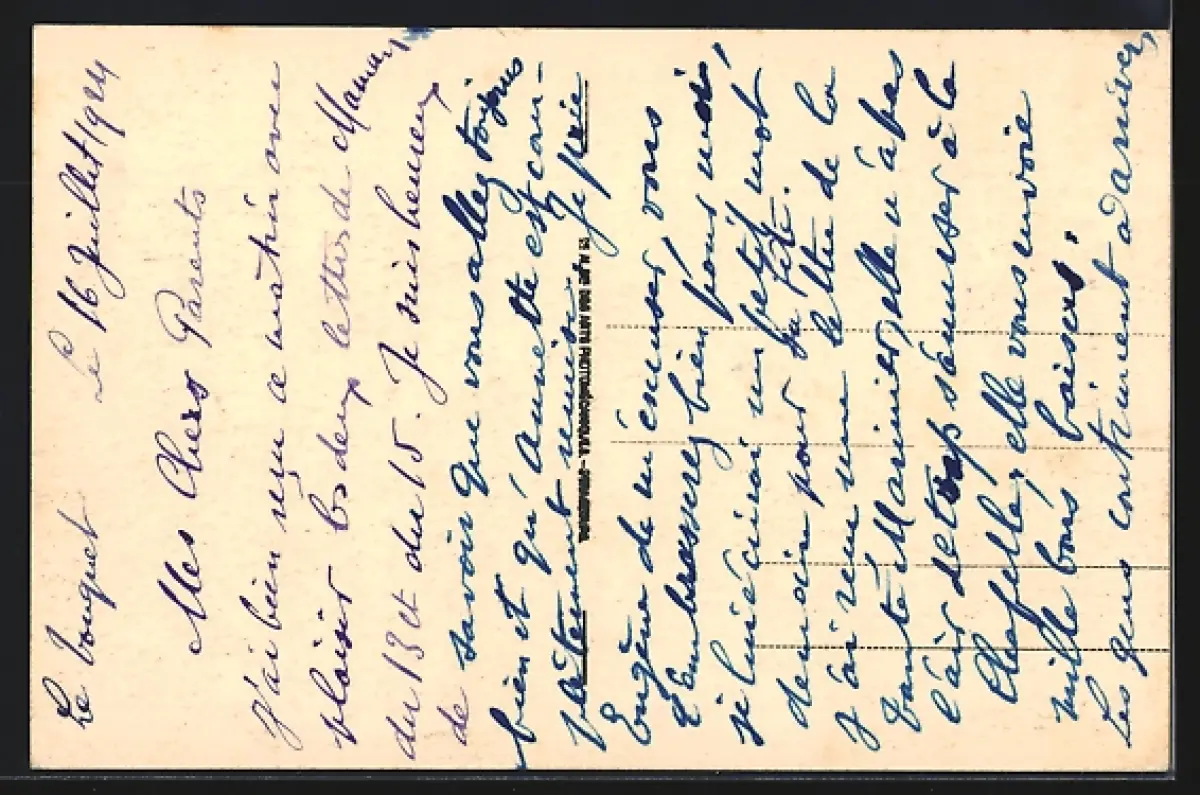 Le Touquet le 16 Juillet 1924
Mes Chers Parents
J'ai bien reçu ce matin avec
plaisir les deux lettres de Maman
du 13 et du 15. Je suis heureux
de savoir que vous allez toujours
bien et qu'Annette est com-
plètement remise. Je prie
Eugène de m'excuser, vous
l'embrasserez bien pour moi,
je lui écrirai un petit mot
demain pour sa fête.
J'ai reçu une lettre de la
tante elle n'a pas
l'air de trop s'amuser à la
elle vous envoie
mille bons baisers.
Les gens continuent d'arriver